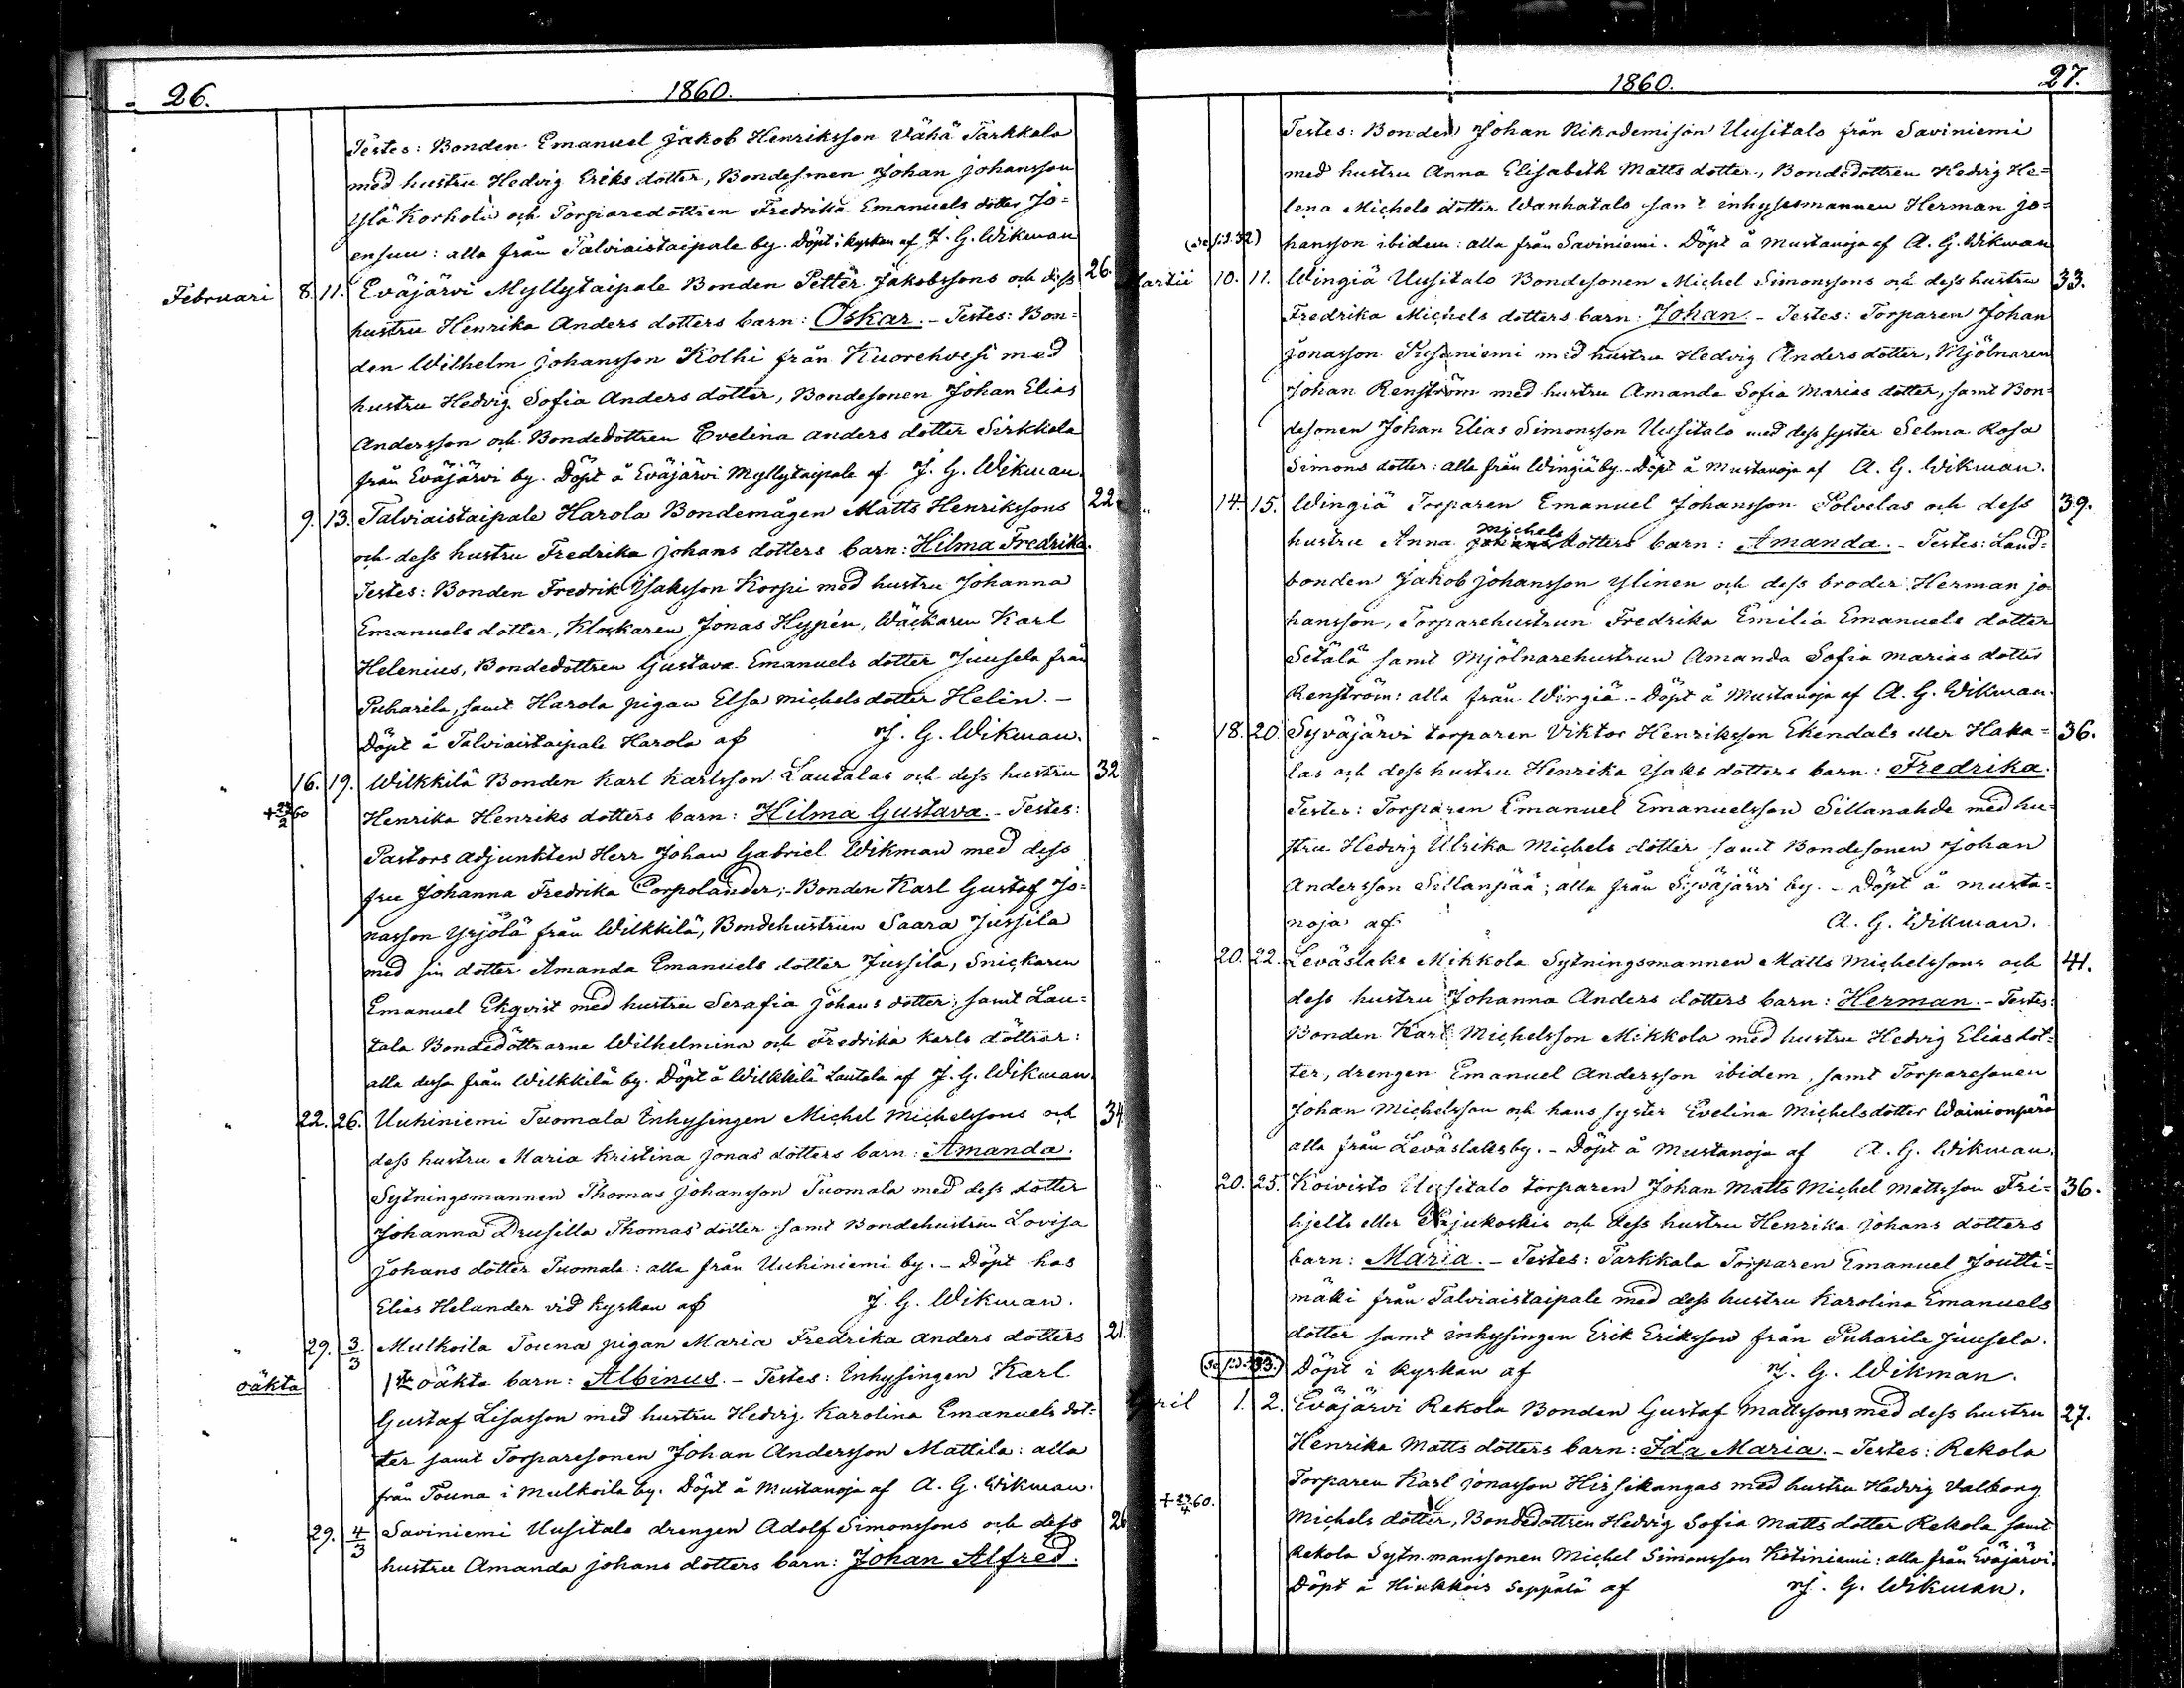 26.
1860.
Testes: Bonden Emanuel Jakob Henriksson Vähä Tarkkala
med hustru Hedvig Eriks dotter, Bondesonen Johan Johansson
Ylä Korholi och Torparedottren Fredrika Emanuels dotter Jo=
ensuu: alla från Talviaistaipale by. Döpt i kyrkan af J. G. Wikman
Februari 8. 11. Eväjärvi Myllytaipale Bonden Petter Jakobssons och dess 26.
hustru Henrika Anders dotters barn: Oskar. - Testes: Bon=
den Wilhelm Johansson Kolhi från Kuorehvesi med
hustru Hedvig Sofia Anders dotter, Bondesonen Johan Elias
Andersson och Bondedottren Evelina Anders dotter Sirkkala
från Eväjärvi by. Döpt å Eväjärvi Myllytaipale af J. G. Wikman.
" 9. 13. Talviaistaipale Harola Bondemågen Matts Henrikssons 22.
och dess hustru Fredrika Johans dotters barn: Hilma Fredrika.
Testes: Bonden Fredrik Isaksson Korpi med hustru Johanna
Emanuels dotter, Klockaren Jonas Hypén, Wäckaren Karl
Helenius, Bondedottren Gustava Emanuels dotter Juusela från
Puharila, samt Harola pigan Elsa Michels dotter Helin. -
Döpt å Talviaistaipale Harola af J. G. Wikman.
" 16. 19. Wilkkilä Bonden Karl Karlsson Lautalas och dess hustru 32
+ 23/2 60 Henrika Henriks dotters barn: Hilma Gustava. - Testes:
Pastors adjunkten Herr Johan Gabriel Wikman med dess
fru Johanna Fredrika Corpolander; - Bonden Karl Gustaf Jo=
nasson Yrjölä från Wilkkilä, Bondehustrun Saara Jussila
med sin dotter Amanda Emanuels dotter Jussila, Snickaren
Emanuel Ekqvist med hustru Serafia Johans dotter, samt Lau=
tala Bondedöttrarne Wilhelmina och Fredrika Karls döttrar:
alla dessa från Wilkkilä by. Döpt å Wilkkilä Lautala af J. G. Wikman.
" 22. 26. Uuhiniemi Tuomala Inhysingen Michel Michelssons och 34
dess hustru Maria Kristina Jonas dotters barn: Amanda.
Sytningsmannen Thomas Johansson Tuomala med dess dotter
Johanna Drusilla Thomas dotter samt Bondehustrun Lovisa
Johans dotter Tuomala: alla från Uuhiniemi by. - Döpt hos
Elias Helander vid kyrkan af J. G. Wikman.
" 29. 3/3 Mulkoila Touna pigan Maria Fredrika Anders dotters 21.
oäkta 1sta oäkta barn: Albinus. - Testes: Inhysingen Karl
Gustaf Lisasson med hustru Hedvig Karolina Emanuels dot=
ter samt Torparesonen Johan Andersson Mattila: alla
från Touna i Mulkoila by. Döpt å Mustanoja af A. G. Wikman.
" 29. 4/3 Saviniemi Uusitalo drengen Adolf Simonssons och dess 26
hustru Amanda Johans dotters barn: Johan Alfred.
1860.
27.
Testes: Bonden Johan Nikodemison Uusitalo från Saviniemi
med hustru Anna Elisabeth Matts dotter, Bondedottren Hedvig He=
lena Michels dotter Wanhatalo samt inhysesmannen Herman Jo=
(se sid. 32) hansson ibidem: alla från Saviniemi. Döpt å Mustanoja af A. G. Wikman
Martii 10. 11. Wingiä Uusitalo Bondesonen Michel Simonssons och dess hustru 33.
Fredrika Michels dotters barn: Johan. - Testes: Torparen Johan
Jonasson Susiniemi med hustru Hedvig Anders dotter, Mjölnaren
Johan Renström med hustru Amanda Sofia Marias dotter, samt Bon=
desonen Johan Elias Simonsson Uusitalo med dess syster Selma Rosa
Simons dotter: alla från Wingiä by. Döpt å Mustanoja af A. G. Wikman.
" 14. 15. Wingiä Torparen Emanuel Johansson Polvelas och dess 39.
Michels
hustru Anna Johans dotters barn: Amanda. - Testes: Land=
bonden Jakob Johansson Ylinen och dess broder Herman Jo=
hansson, Torparehustrun Fredrika Emilia Emanuels dotter
Setälä samt Mjölnarehustrun Amanda Sofia Marias dotter
Renström: alla från Wingiä. - Döpt å Mustanoja af A. G. Wikman.
" 18. 20. Syväjärvi torparen Viktor Henriksson Ekendals eller Haka= 36.
las och dess hustru Henrika Isaks dotters barn: Fredrika.
Testes: Torparen Emanuel Emanuelsson Sillanahde med hu=
stru Hedvig Ulrika Michels dotter samt Bondesonen Johan
Andersson Sillanpää; alla från Syväjärvi by. - Döpt å Musta=
noja af A. G. Wikman.
" 20. 22. Leväslaks Mikkola Sytningsmannen Matts Michelssons och 41.
dess hustru Johanna Anders dotters barn: Herman. - Testes:
Bonden Karl Michelsson Mikkola med hustru Hedvig Elias dot=
ter, drengen Emanuel Andersson ibidem, samt Torparesonen
Johan Michelsson och hans syster Evelina Michels dotter Wainionperä
alla från Leväslaks by. - Döpt å Mustanoja af A. G. Wikman.
" 20. 25. Koivisto Uusitalo torparen Johan Matts Michel Mattsson Fri= 36.
hjelts eller Pajukoskis och dess hustru Henrika Johans dotters
barn: Maria. - Testes: Tarkkala Torparen Emanuel Joutti=
mäki från Talviaistaipale med dess hustru Karolina Emanuels
dotter samt inhysingen Erik Eriksson från Puharila Juusela.
(Se sid. 33.) Döpt i kyrkan af J. G. Wikman.
April 1. 2. Eväjärvi Rekola Bonden Gustaf Mattssons med dess hustru 27.
Henrika Matts dotters barn: Ida Maria. - Testes: Rekola
Torparen Karl Jonasson Hirsikangas med hustru Hedvig Valborg
+ 23/4 60. Michels dotter, Bondedottren Hedvig Sofia Matts dotter Rekola samt
Rekola Sytn.manssonen Michel Simonsson Kotiniemi: alla från Eväjärvi.
Döpt å Hiukkois Seppälä af J. G. Wikman.